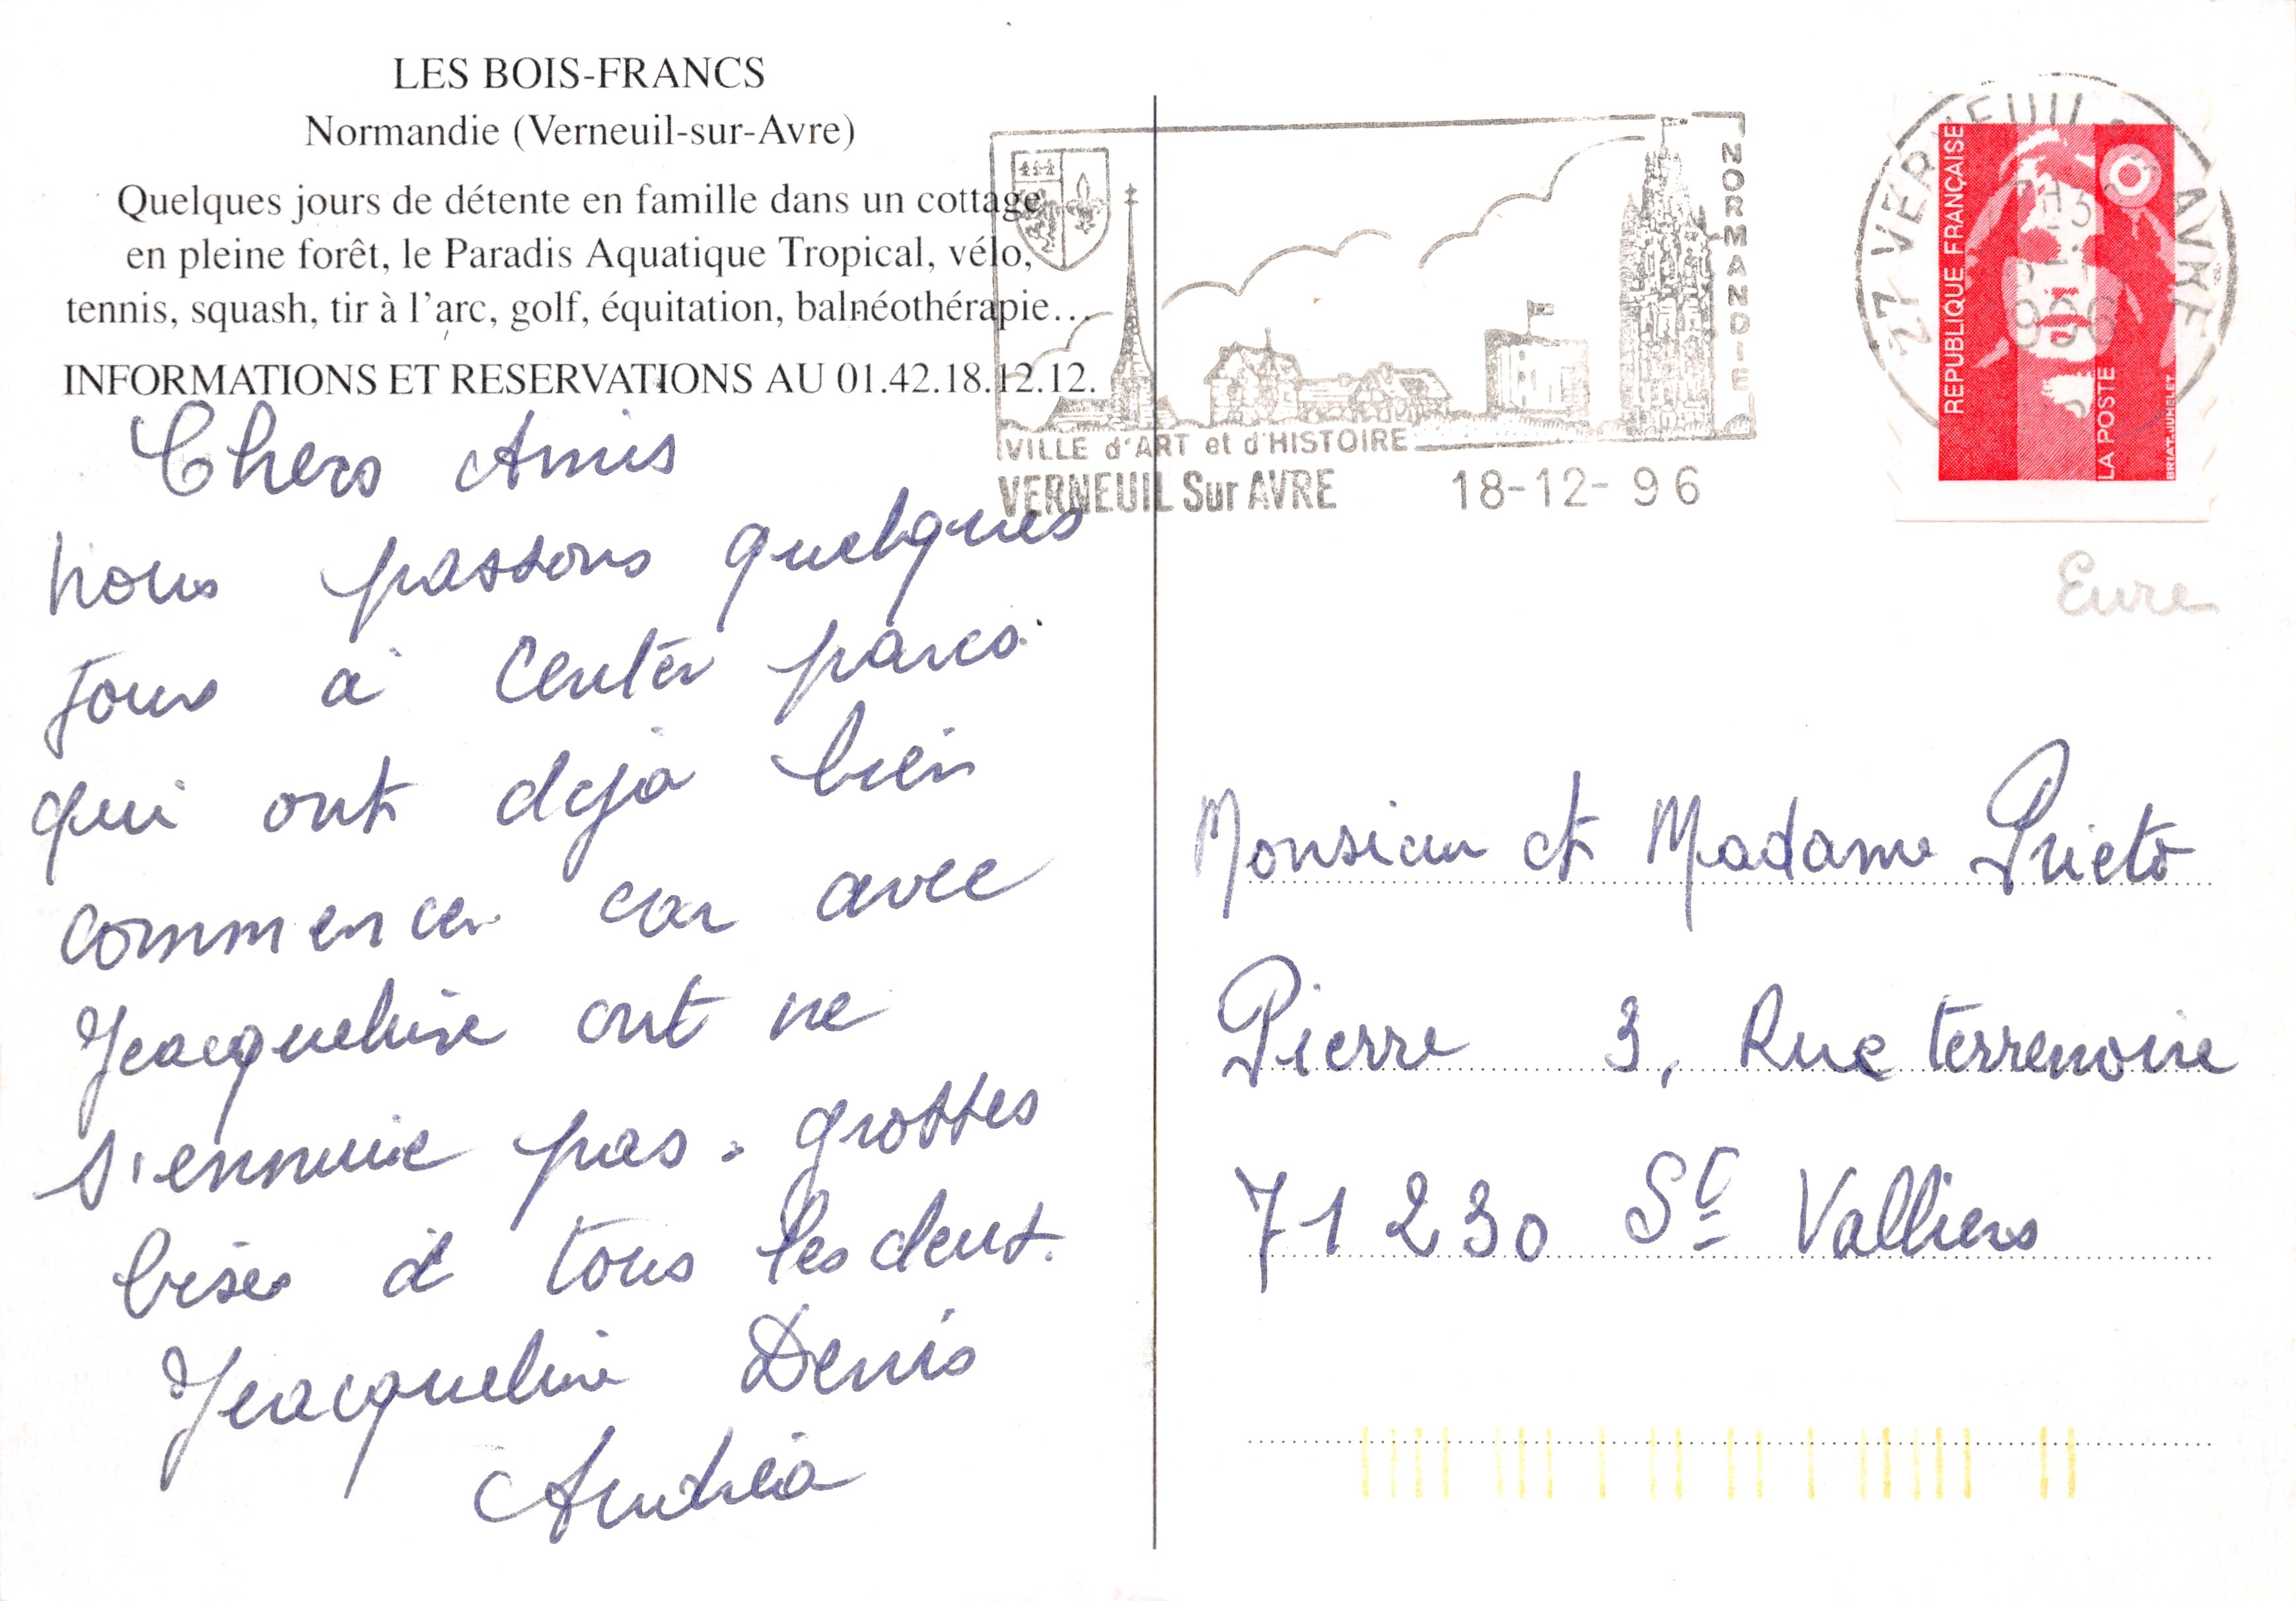 LES BOIS-FRANCS
Normandie (Verneuil-sur-Avre)
Quelques jours de détente en famille dans un cottage
en pleine forêt, le Paradis Aquatique Tropical, vélo,
tennis, squash, tir à l'arc, golf, équitation, balnéothérapie...
INFORMATIONS ET RESERVATIONS AU 01.42.18.12.12.
Chers Amis
nous passons quelques
Jours a Center parcs
qui ont deja bien
commencer car avec
Jeacqueline ont ne
s'ennuie pas. grosses
bises a tous les deux.
Jeacqueline Denis
Andréa
NORMANDIE
VILLE d'ART et d'HISTOIRE
VERNEUIL Sur AVRE 18-12-96
27 VERNEUIL S AVRE
REPUBLIQUE FRANÇAISE
LA POSTE
BRIAT.JUMELET
Eure
Monsieur et Madame Prieto
Pierre 3, Rue terrenoire
71230 St Valliers